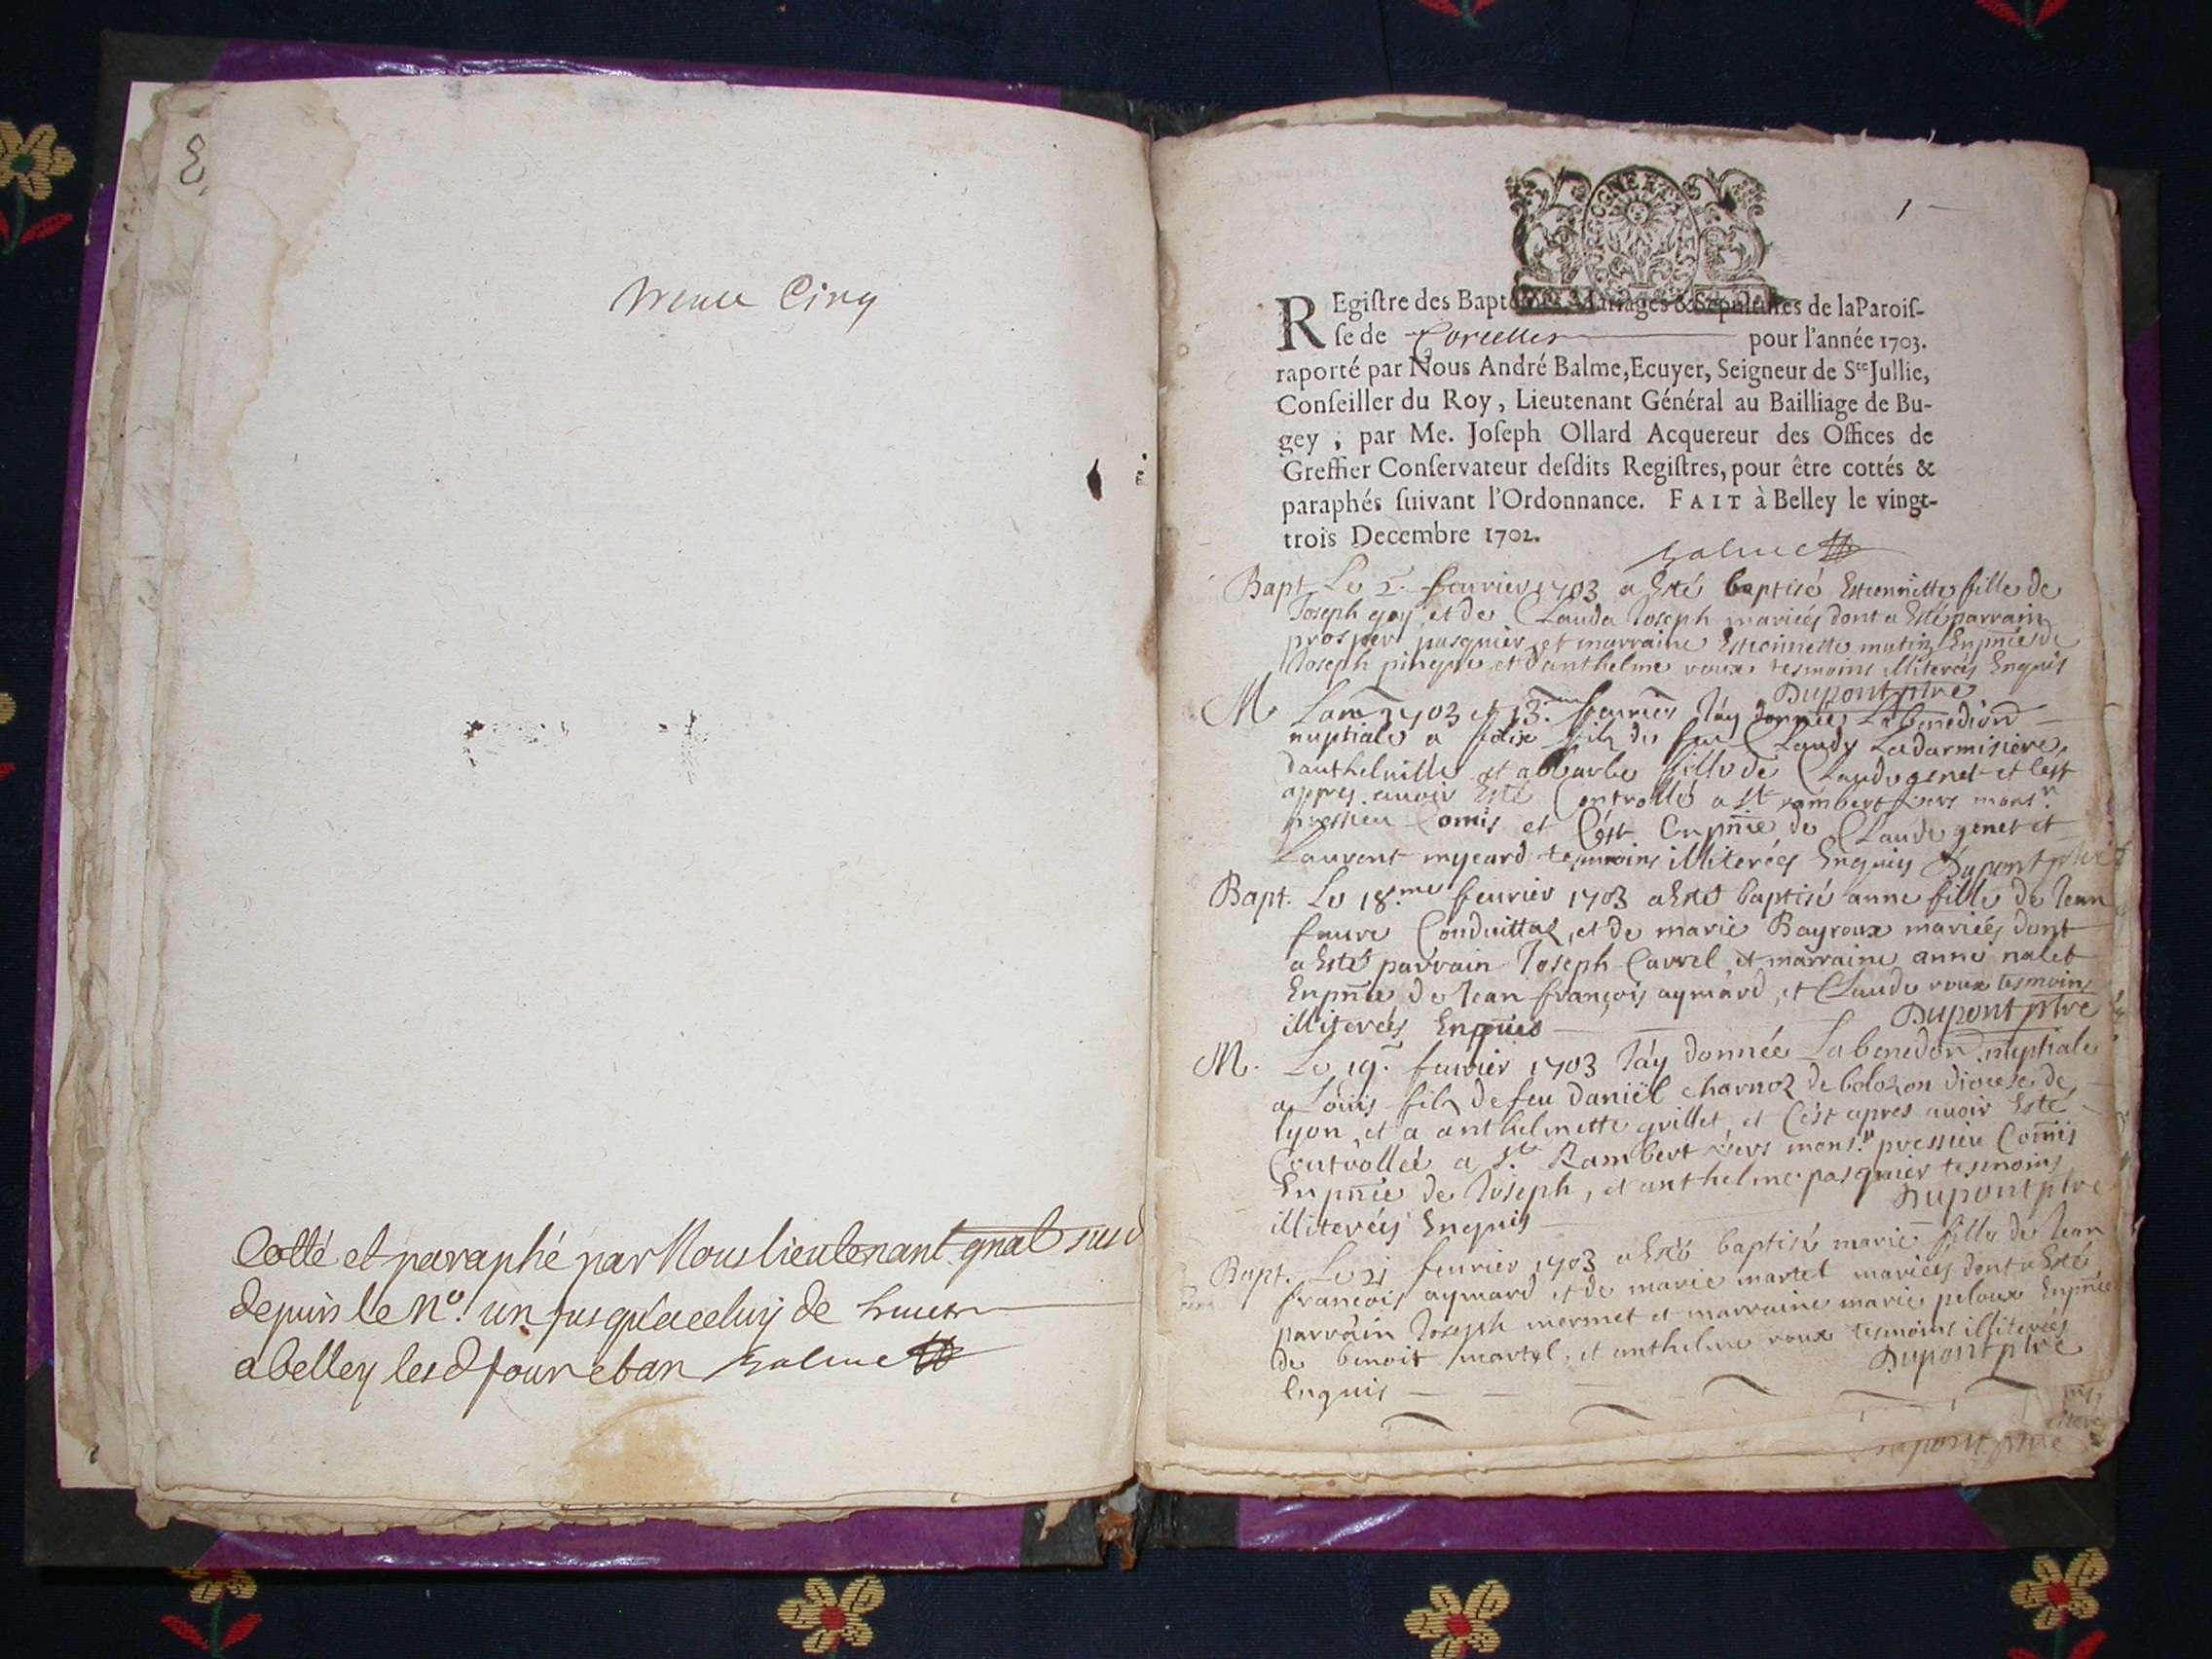 Cinq
Cotté et paraphé par Nous lieutenant gnal susd
depuis le N.o un jusqu'a celuy de
a belley lesd jour et an Balme
1
REgiſtre des Baptêmes, Mariages & Sepultures de la Paroiſ-
ſe de Corcelles pour l'année 1703.
raporté par Nous André Balme, Ecuyer, Seigneur de Ste Jullie,
Conſeiller du Roy, Lieutenant Général au Bailliage de Bu-
gey, par Me. Joſeph Ollard Acquereur des Offices de
Greffier Conſervateur deſdits Regiſtres, pour être cottés &
paraphés ſuivant l'Ordonnance. FAIT à Belley le vingt-
trois Decembre 1702.
Balme
Bapt. Le 2. feurier 1703 a Esté baptisé Estiennette fille de
Joseph goy et de Clauda Joseph mariés dont a Esté parrain
prosper pasquier et marraine Estiennette mutin Enpnce de
Joseph pingon et d'anthelme roux tesmoins illiterés Enquis
Dupont ptre
M. Lan 1703 et 13. feurier J'ay donnée La benedion
nuptiale a fils du feu Claudy Ladarmisiere
d'anthelmille et a barbe fille de Claude genet et c'est
appres auoir Esté Controllé a St rambert vers monsr.
pressieu Comis et C'est Enpnce de Claude genet et
Laurent mycard tesmoins illiterés Enquis Dupont ptre
Bapt. Le 18.me feurier 1703 a Esté baptisé anne fille de Jean
faure Conduittaz, et de marie Bayroux mariés dont
a Esté parrain Joseph Carrel et marraine anne nalet
Enpnce de Jean françois aymard, et Claude roux tesmoins
illiterés Enquis
Dupont ptre
M. Le 19. feurier 1703 J'ay donnée La benedon nuptiale
a Loüis fils de feu Daniël charnoz de bolozon diocese de
lyon, et a anthelmette grillet, et C'est apres auoir Esté
Controllée a St. Rambert vers monsr. pressieu Comis
Enpnce de Joseph, et anthelme pasquier tesmoins
illiterés Enquis
Dupont ptre
Bapt. Le 21 feurier 1703 a Esté baptisé marie fille de Jean
françois aymard et de marie martel mariés dont a Esté
parrain Joseph mermet et marraine marie peloux Enpnce
de benoit martel, et anthelme roux tesmoins illiterés
Enquis
Dupont ptre
Dupont ptre